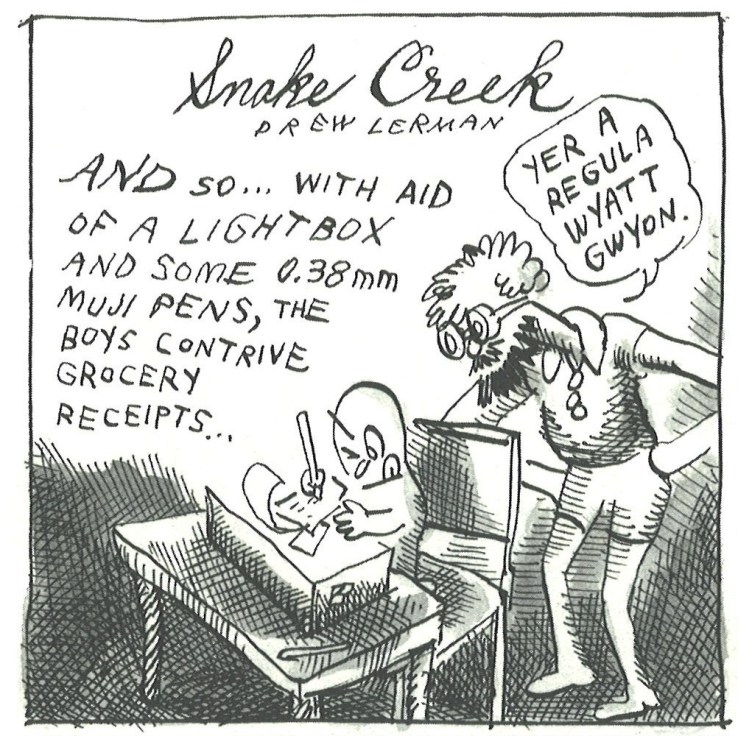 Snake Creek
DREW LERMAN
AND SO... WITH AID
OF A LIGHTBOX
AND SOME 0.38mm
MUJI PENS, THE
BOYS CONTRIVE
GROCERY
RECEIPTS...
YER A
REGULA
WYATT
GWYON.